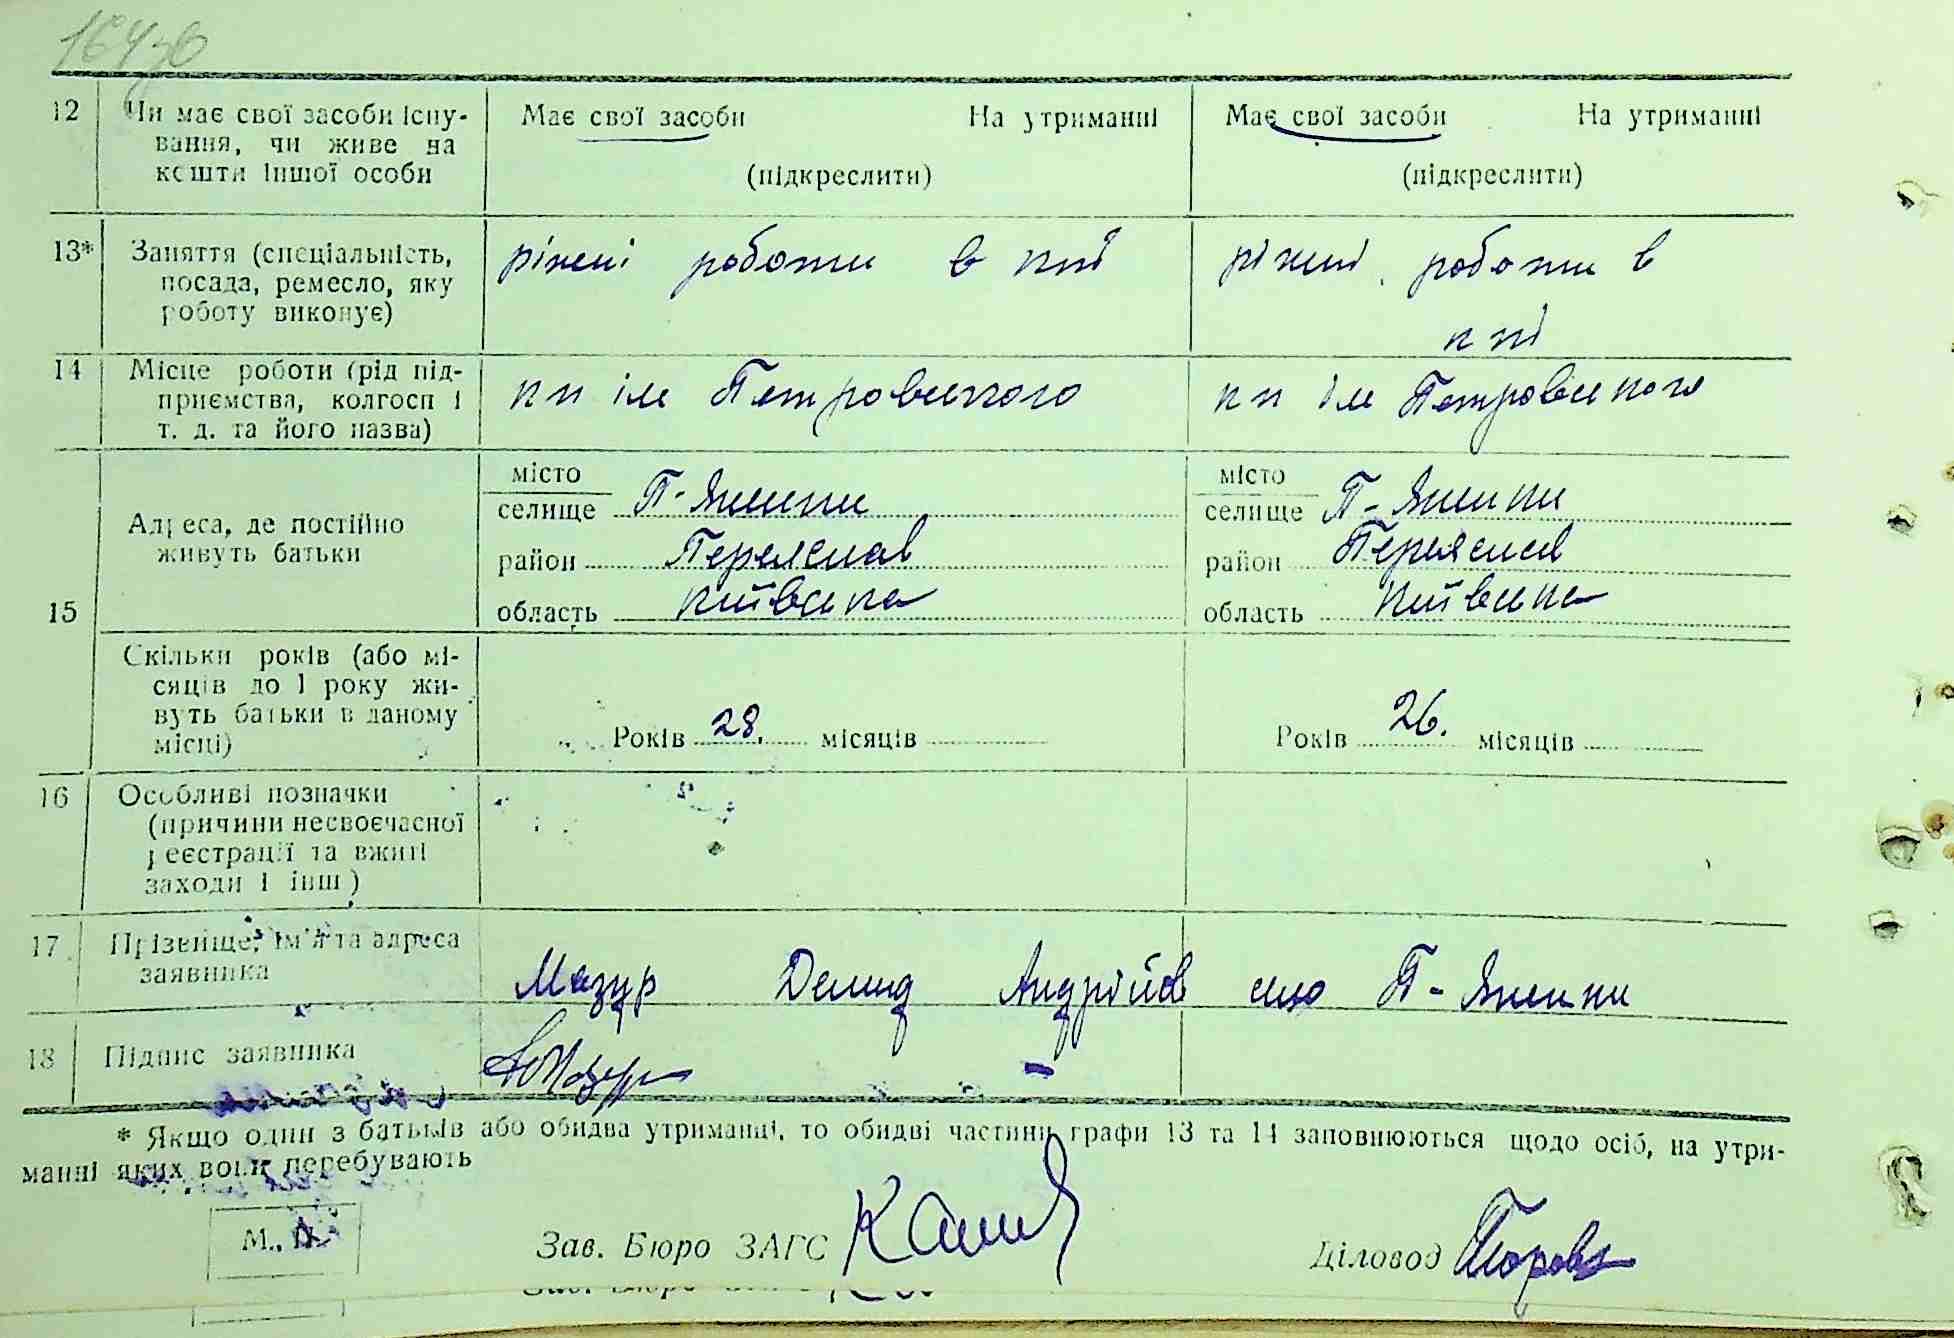 164зв
12 Чи має свої засоби існу- Має свої засоби На утриманні Має свої засоби На утриманні
вання, чи живе на
кошти іншої особи (підкреслити) (підкреслити)
13* Заняття (спеціальність, ріжні роботи в кпі ріжні роботи в
посада, ремесло, яку
роботу виконує) кпі
14 Місце роботи (рід під-
приємства, колгосп і кп ім Петровського кп ім Петровського
т. д. та його назва)
місто місто
Адреса, де постійно селище П- селище П-
живуть батьки район Переяслав район Переяслав
15 область київська область київська
Скільки років (або мі-
сяців до 1 року жи-
вуть батьки в даному Років 28. місяців Років 26. місяців
місці)
16 Особливі позначки
(причини несвоєчасної
реєстрації та вжиті
заходи і інш)
17 Прізвище, ім'я та адреса
заявника Мазур Демид Андрійов село П-
18 Підпис заявника Мазур
* Якщо один з батьків або обидва утриманці, то обидві частини графи 13 та 14 заповнюються щодо осіб, на утри-
манні яких вони перебувають
М. П.
Зав. Бюро ЗАГС Діловод
Зав. Бюро